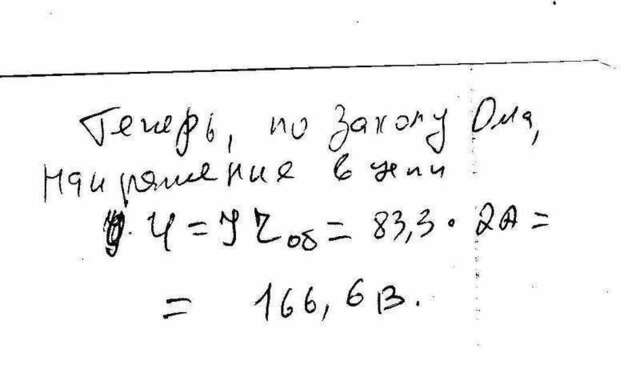 Теперь, по закону Ома,
напряжение в цепи
U = I Z об = 83,3 · 2A =
= 166,6 В.